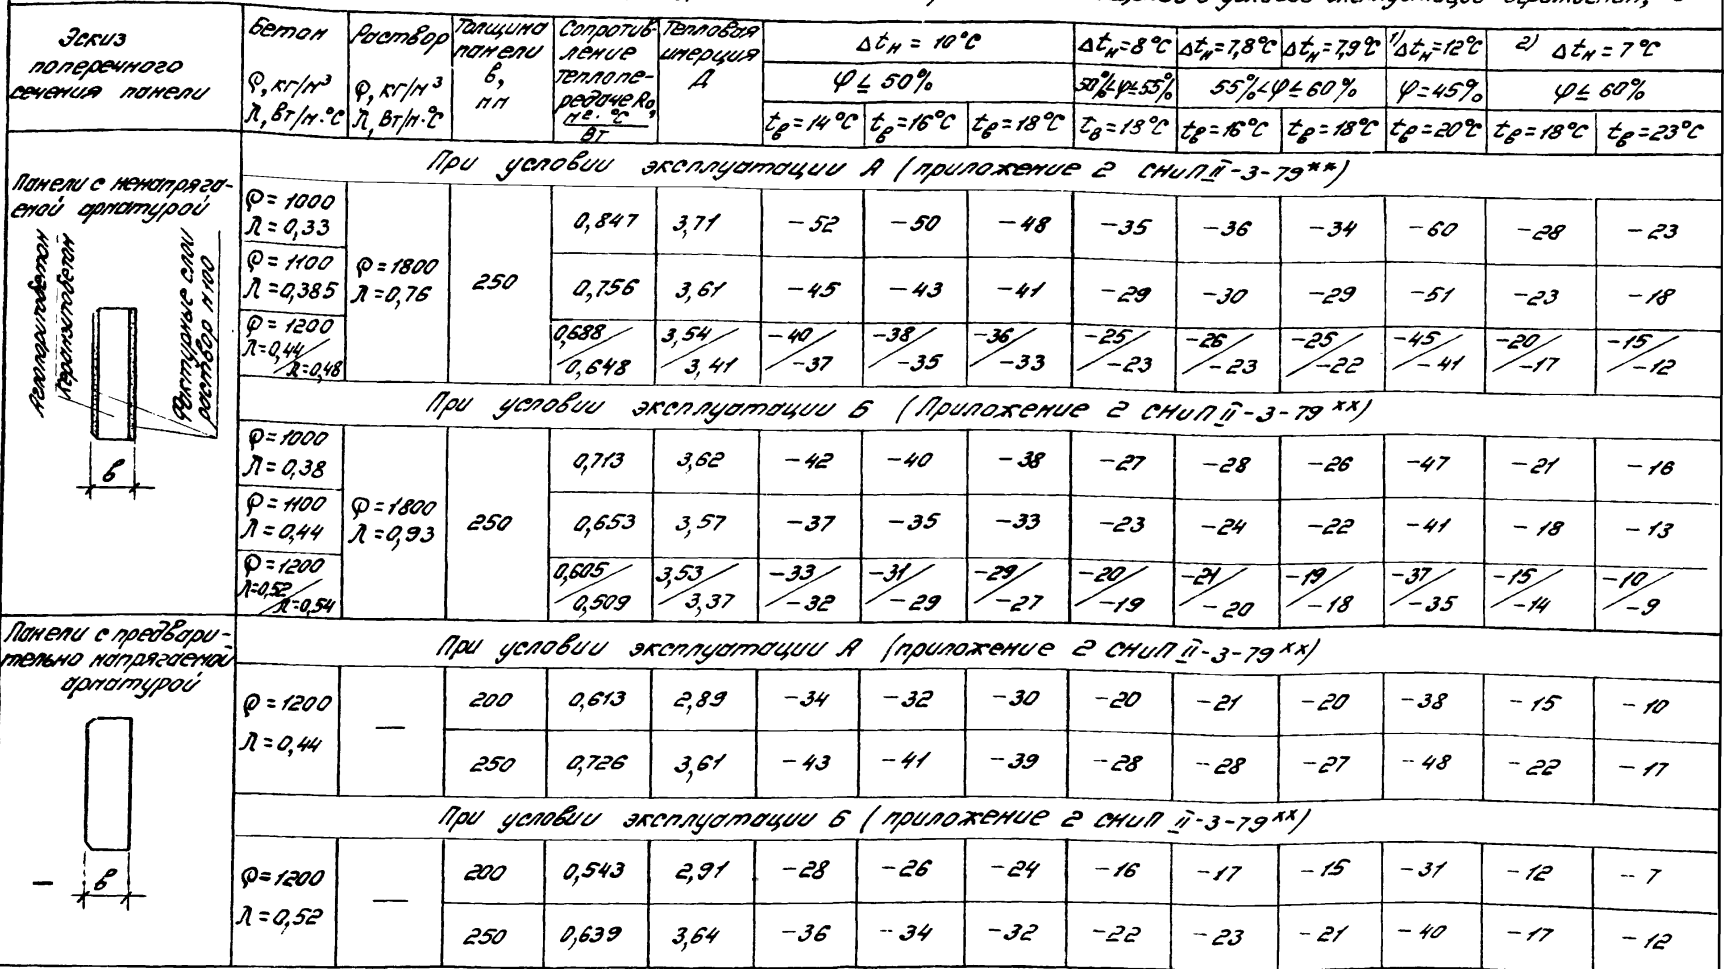 Эскиз поперечного сечения панели | Бетон ρ, кг/м³ λ, Вт/м·°С | Раствор ρ, кг/м³ λ, Вт/м·°С | Толщина панели в, мм | Сопротивление теплопередаче R₀, м²·°С/Вт | Тепловая инерция Д | Δtн = 10°С | Δtн=8°С | Δtн=7,8°С | Δtн=7,9°С | 1) Δtн=12°С | 2) Δtн = 7°С
φ ≤ 50% | 50%<φ≤55% | 55%<φ≤60% | φ=45% | φ≤ 60%
tв=14°С | tв=16°С | tв=18°С | tв=18°С | tв=16°С | tв=18°С | tв=20°С | tв=18°С | tв=23°С
Панели с ненапрягаемой арматурой
Аглопоритобетон
Керамзитобетон
Фактурные слои раствор М100
в
При условии эксплуатации А (приложение 2 СНиП II-3-79**)
ρ=1000 λ=0,33 | ρ=1800 λ=0,76 | 250 | 0,847 | 3,71 | -52 | -50 | -48 | -35 | -36 | -34 | -60 | -28 | -23
ρ=1100 λ=0,385 | 0,756 | 3,61 | -45 | -43 | -41 | -29 | -30 | -29 | -51 | -23 | -18
ρ=1200 λ=0,44/λ=0,48 | 0,688/0,648 | 3,54/3,41 | -40/-37 | -38/-35 | -36/-33 | -25/-23 | -26/-23 | -25/-22 | -45/-41 | -20/-17 | -15/-12
При условии эксплуатации Б (Приложение 2 СНиП II-3-79ˣˣ)
ρ=1000 λ=0,38 | ρ=1800 λ=0,93 | 250 | 0,713 | 3,62 | -42 | -40 | -38 | -27 | -28 | -26 | -47 | -21 | -16
ρ=1100 λ=0,44 | 0,653 | 3,57 | -37 | -35 | -33 | -23 | -24 | -22 | -41 | -18 | -13
ρ=1200 λ=0,52/λ=0,54 | 0,605/0,509 | 3,53/3,37 | -33/-32 | -31/-29 | -29/-27 | -20/-19 | -21/-20 | -19/-18 | -37/-35 | -15/-14 | -10/-9
Панели с предварительно напрягаемой арматурой
в
При условии эксплуатации А (приложение 2 СНиП II-3-79ˣˣ)
ρ=1200 λ=0,44 | — | 200 | 0,613 | 2,89 | -34 | -32 | -30 | -20 | -21 | -20 | -38 | -15 | -10
250 | 0,726 | 3,61 | -43 | -41 | -39 | -28 | -28 | -27 | -48 | -22 | -17
При условии эксплуатации Б (приложение 2 СНиП II-3-79ˣˣ)
ρ=1200 λ=0,52 | — | 200 | 0,543 | 2,91 | -28 | -26 | -24 | -16 | -17 | -15 | -31 | -12 | -7
250 | 0,639 | 3,64 | -36 | -34 | -32 | -22 | -23 | -21 | -40 | -17 | -12